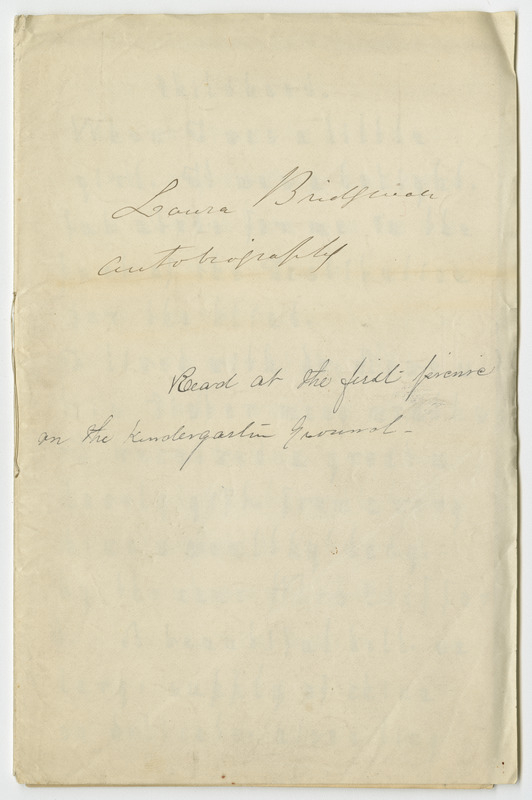 Laura Bridgman
autobiography
Read at the first picnic
on the Kindergarten Ground -